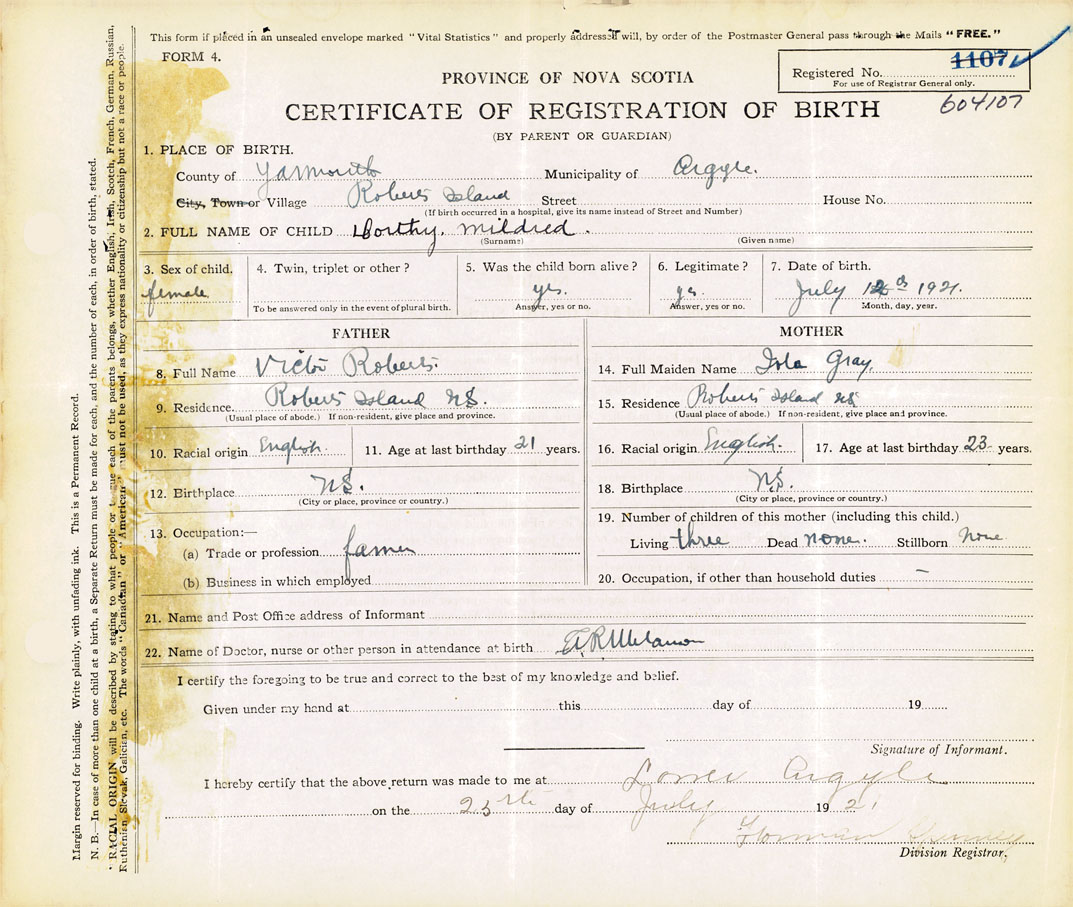 This form if placed in an unsealed envelope marked "Vital Statistics" and properly addressed will, by order of the Postmaster General pass through the Mails "FREE."
FORM 4.
Registered No. 1107
For use of Registrar General only.
604107
PROVINCE OF NOVA SCOTIA
CERTIFICATE OF REGISTRATION OF BIRTH
(BY PARENT OR GUARDIAN)
1. PLACE OF BIRTH.
County of Yarmouth Municipality of Argyle.
City, Town or Village Roberts Island Street House No.
(If birth occurred in a hospital, give its name instead of Street and Number)
2. FULL NAME OF CHILD Dorthy, Mildred.
(Surname) (Given name)
3. Sex of child. 4. Twin, triplet or other? 5. Was the child born alive? 6. Legitimate? 7. Date of birth.
female yes. yes. July 12th 1921.
To be answered only in the event of plural birth. Answer, yes or no. Answer, yes or no. Month, day, year.
FATHER
8. Full Name Victor Roberts.
9. Residence. Roberts Island NS.
(Usual place of abode.) If non-resident, give place and province.
10. Racial origin English. 11. Age at last birthday 21 years.
12. Birthplace NS.
(City or place, province or country.)
13. Occupation:—
(a) Trade or profession farmer
(b) Business in which employed
MOTHER
14. Full Maiden Name Iola Gray.
15. Residence Roberts Island NS
(Usual place of abode.) If non-resident, give place and province.
16. Racial origin English. 17. Age at last birthday 23 years.
18. Birthplace NS.
(City or place, province or country.)
19. Number of children of this mother (including this child.)
Living three Dead none. Stillborn None
20. Occupation, if other than household duties —
21. Name and Post Office address of Informant
22. Name of Doctor, nurse or other person in attendance at birth A.R. Melanson
I certify the foregoing to be true and correct to the best of my knowledge and belief.
Given under my hand at this day of 19
Signature of Informant.
I hereby certify that the above return was made to me at Lower Argyle
on the 25th day of July 1921
Division Registrar.
Margin reserved for binding. Write plainly, with unfading ink. This is a Permanent Record.
N. B.—In case of more than one child at a birth, a Separate Return must be made for each, and the number of each, in order of birth, stated.
RACIAL ORIGIN will be described by stating to what people or tongue each of the parents belongs, whether English, Irish, Scotch, French, German, Russian,
Ruthenian, Slovak, Galician, etc. The words "Canadian" or "American" must not be used, as they express nationality or citizenship but not a race or people.